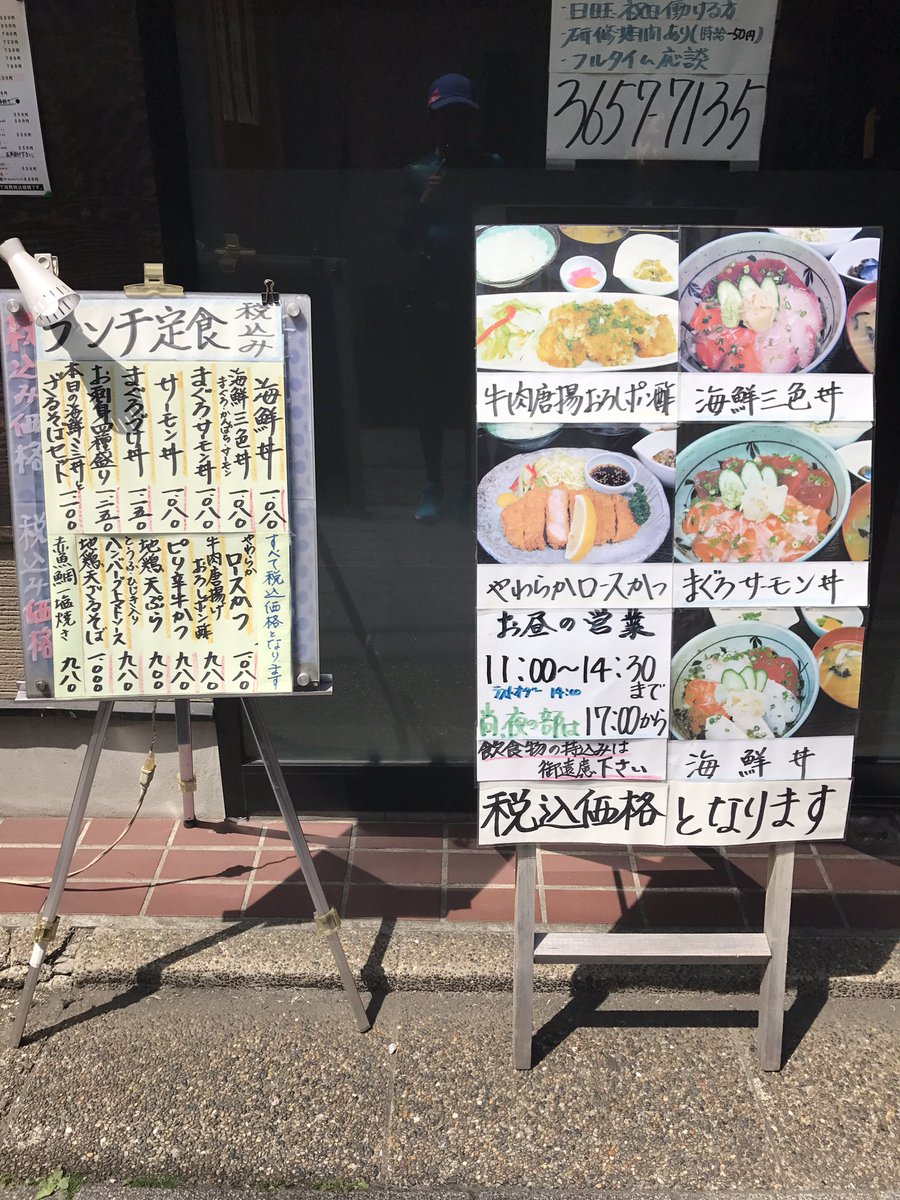 ・日旺、祝日働ける方
研修期間あり(時給-50円)
・フルタイム応談
3657-7135
ランチ定食
税込み
海鮮丼 1.080
海鮮三色丼 まぐろ・かんぱち・サーモン 1.080
まぐろサーモン丼 1.080
サーモン丼 1.080
まぐろづけ丼 1.250
お刺身四種盛り 1.250
本日の海鮮ミニ丼と
ざるそばセット 1.200
すべて税込価格となります
やわらかロースかつ 1.080
牛肉唐揚げおろしポン酢 980
ピリ辛牛かつ 980
地鶏天ぷら 980
とうふ・ひじき入り
ハンバーグトマトソース 980
地鶏天ざるそば 1.000
赤魚鯛塩焼き 980
税込み価格
税込み価格
牛肉唐揚おろしポン酢
海鮮三色丼
やわらかロースかつ
まぐろサーモン丼
お昼の営業
11:00〜14:30
まで
ラストオーダー 14:00
尚夜の部は17:00から
飲食物の持込みは
御遠慮下さい
海鮮丼
税込価格となります